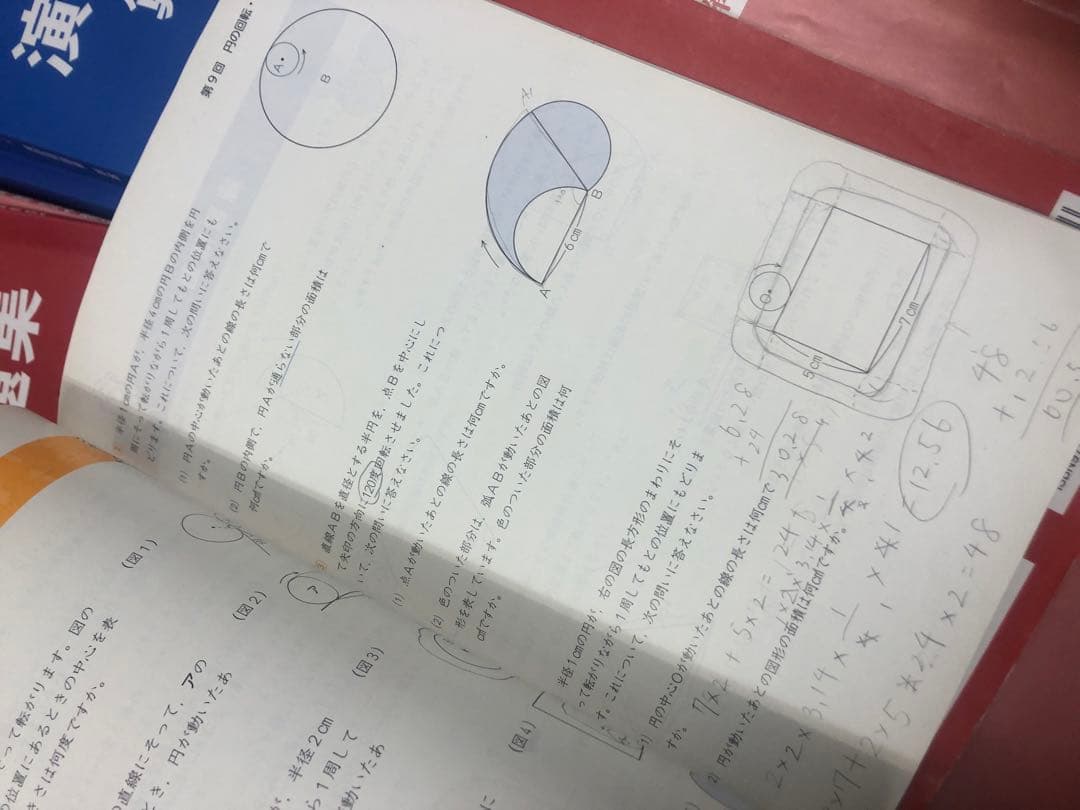 演
集
第9回 円の回転・
A
B
半径1cmの円Aが、半径4cmの円Bの内側を円
周にそって転がりながら1周してもとの位置にも
どります。これについて、次の問いに答えなさい。
(1) 円Aの中心が動いたあとの線の長さは何cmで
すか。
(2) 円Bの内側で、円Aが通らない部分の面積は
何cm²ですか。
3 直線ABを直径とする半円を、点Bを中心にし
て矢印の方向に120度回転させました。これにつ
いて、次の問いに答えなさい。
(1) 点Aが動いたあとの線の長さは何cmですか。
(2) 色のついた部分は、弧ABが動いたあとの図
形を表しています。色のついた部分の面積は何
cm²ですか。
A
6cm
B
半径1cmの円が、右の図の長方形のまわりにそ
って転がりながら1周してもとの位置にもどりま
す。これについて、次の問いに答えなさい。
1) 円の中心Oが動いたあとの線の長さは何cmで
すか。
2) 円が動いたあとの図形の面積は何cm²ですか。
O
5cm
7cm
7×2+5×2=24
+6.28
24
30.28
48
12.56
2×2×3.14×
×2=48
(図1)
(図2)
(図3)
(図4)
そって転がります。図の
位置にあるときの中心を表
さは何度ですか。
直線にそって、アの
とき、円が動いたあ
、半径2cm
ら1周して
が動いたあ